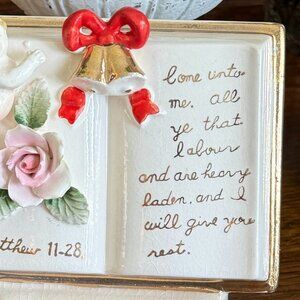 Come unto
me. all
ye that
labour
and are heavy
laden, and I
will give you
rest.
tthew 11-28.